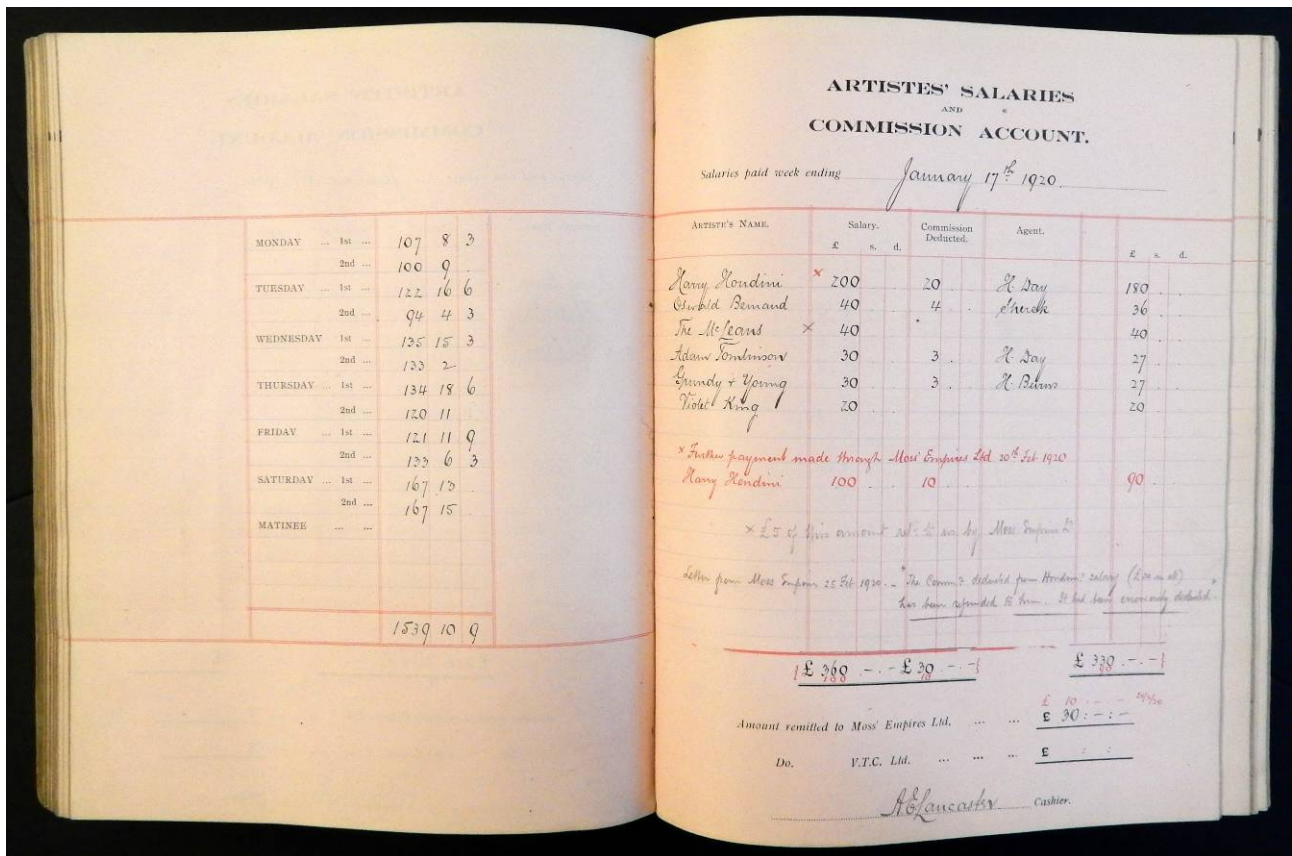 MONDAY ... 1st ... 107 8 3
2nd ... 100 9 .
TUESDAY ... 1st ... 122 16 6
2nd ... 94 4 3
WEDNESDAY 1st ... 135 15 3
2nd ... 133 2
THURSDAY ... 1st ... 134 18 6
2nd ... 120 11
FRIDAY ... 1st ... 121 11 9
2nd ... 133 6 3
SATURDAY ... 1st ... 167 13 .
2nd ... 167 15
MATINEE ... ...
1539 10 9
ARTISTES' SALARIES
AND
COMMISSION ACCOUNT.
Salaries paid week ending January 17th 1920.
ARTISTE'S NAME. Salary. Commission Deducted. Agent.
£ s. d. £ s. d.
Harry Houdini × 200 . . 20 . H. Day 180 . .
Oswald Bemand 40 . . 4 . 36 . .
The McLeans × 40 . . 40 . .
Adam Tomlinson 30 . . 3 . H. Day 27 . .
Grundy & Young 30 . . 3 . H. 27 . .
Violet King 20 . . 20 . .
× Further payment made through Moss' Empires Ltd 20th Feb 1920
Harry Houdini 100 . . 10 . 90 . .
× £5 of this amount to us by Moss Empires Ld
Letter from Moss Empires 25 Feb 1920. - "The Commn deducted from Houdini's salary (£30 in all)
has been refunded to him. It had been erroneously deducted."
£ 360 . - . - £ 30 . - . - £ 330 . - . -
100 10 90
£ 10 . - -
Amount remitted to Moss' Empires Ltd. ... ... £ 30 : - : -
Do. V.T.C. Ltd. ... ... ... £ : :
A E Lancaster Cashier.